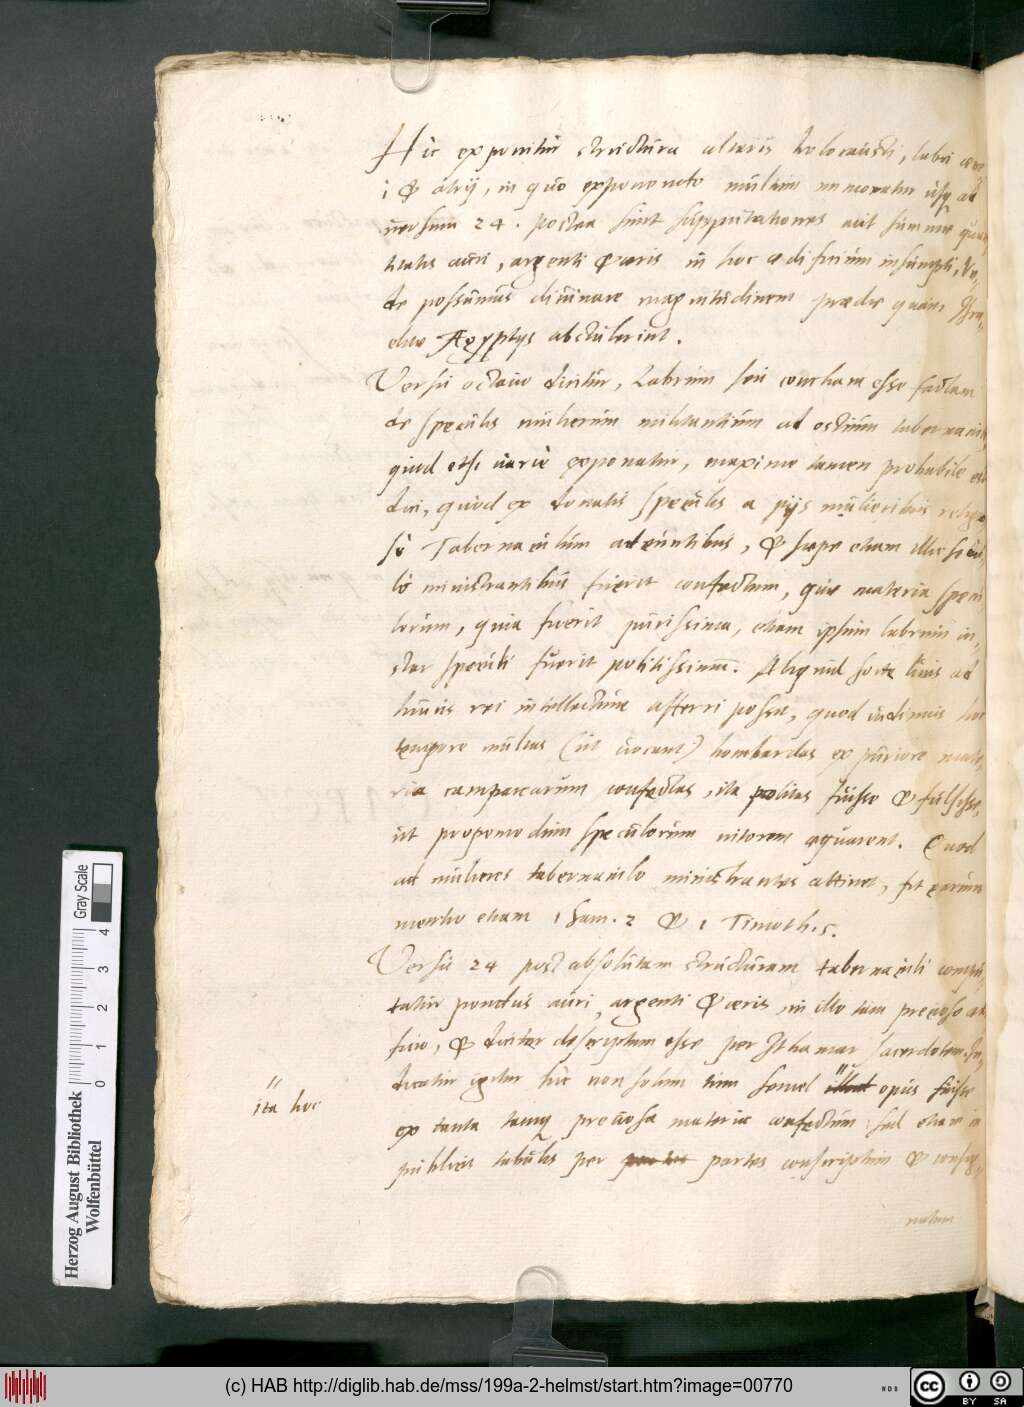 Hic exponitur structura altaris holocausti, labri ære
i & atrij, in quo exponendo multum immoratur usq ad
versum 24. postea sunt supputationes aut summæ quan
titatis auri, argenti & æris in hoc ædificium insumpti, Un-
de possumus divinare magnitudinem prædæ quam Isra-
elitæ Ægyptijs abstulerint.
Versu octavo dicitur, Labrum seu concham esse factam
de speculis mulierum militantium ad ostium tabernaculi,
quod etsi varie exponatur, maxime tamen probabile est
dici, quod ex donatis speculis a pijs mulieribus religio
se Tabernaculum adeuntibus, & sæpe etiam illic sedu-
lo ministrantibus fuerit confectum, quæ materia specu
lorum, quia fuerit purissima, etiam ipsum labrum in-
star speculi fuerit politissimum. Aliquid forte lucis ad
huius rei intellectum afferri posset, quod vidimus hoc
tempore multas (ut vocant) bombardas ex puriore mate-
ria campanarum confectas, ita politas fuisse & fulsisse,
ut propemodum speculorum nitorem æquarent. Quod
ad mulieres tabernaculo ministrantes attinet, fit earum
mentio etiam 1 Sam. 2 & 1 Timoth. 5.
Versu 24 post absolutam structuram tabernaculi compu
tatur pondus auri, argenti & æris in illo tam precioso ædi
ficio, & dicitur descriptum esse per Ithamar sacerdotem. In-
dicatur igitur hic non solum tum semel illud opus fuisse
ita hoc
ex tanta tamq preciosa materia confectum sed etiam in
publicis tabulis per partes conscriptum & consig-
natum
(c) HAB http://diglib.hab.de/mss/199a-2-helmst/start.htm?image=00770
Herzog August Bibliothek
Wolfenbüttel
0 1 2 3 4
Gray Scale
cc BY SA